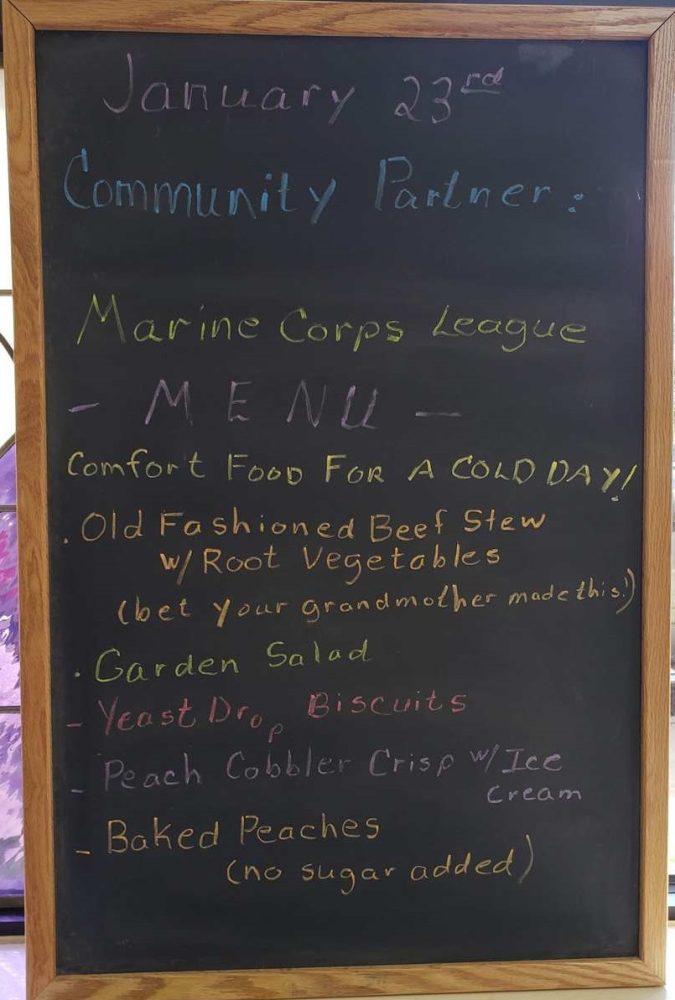 January 23rd
Community Partner:
Marine Corps League
- MENU -
Comfort FOOD FOR A COLD DAY!
. Old Fashioned Beef Stew
w/ Root Vegetables
(bet your grandmother made this!)
. Garden Salad
- Yeast Drop Biscuits
- Peach Cobbler Crisp w/ Ice
Cream
- Baked Peaches
(no sugar added)